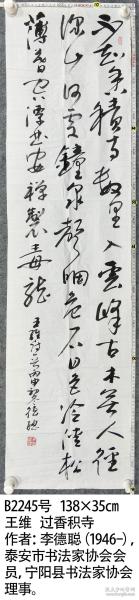 不知香积寺数里入云峰古木无人径
深山何处钟泉声咽危石日色冷青松
薄暮空潭曲安禅制毒龙
王维诗
B2245号 138×35cm
王维 过香积寺
作者:李德聪(1946-),
泰安市书法家协会会
员,宁阳县书法家协会
理事。